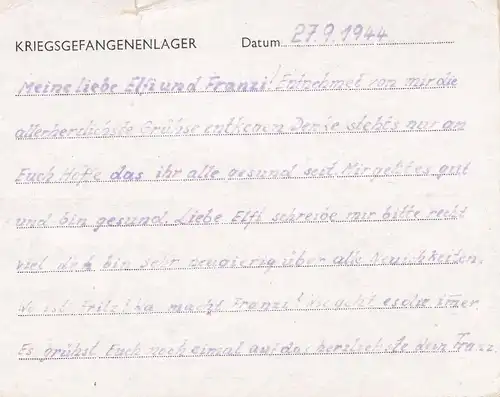 KRIEGSGEFANGENENLAGER Datum 27.9.1944
Meine liebe Elfi und Franzi! Entnehmet von mir die
allerherzlichste Grühse entkegen Denke stehts nur an
Euch Hoffe das ihr alle gesund seit. Mir geht es gut
und bin gesund. Liebe Elfi schreibe mir bitte recht
viel den bin sehr neugierig über alle Neuichkeiten.
Wo ist Fritz macht Franzi! Wie geht es dir imer.
Es grühst Euch noch eimal auf das herzlichste dein Franz